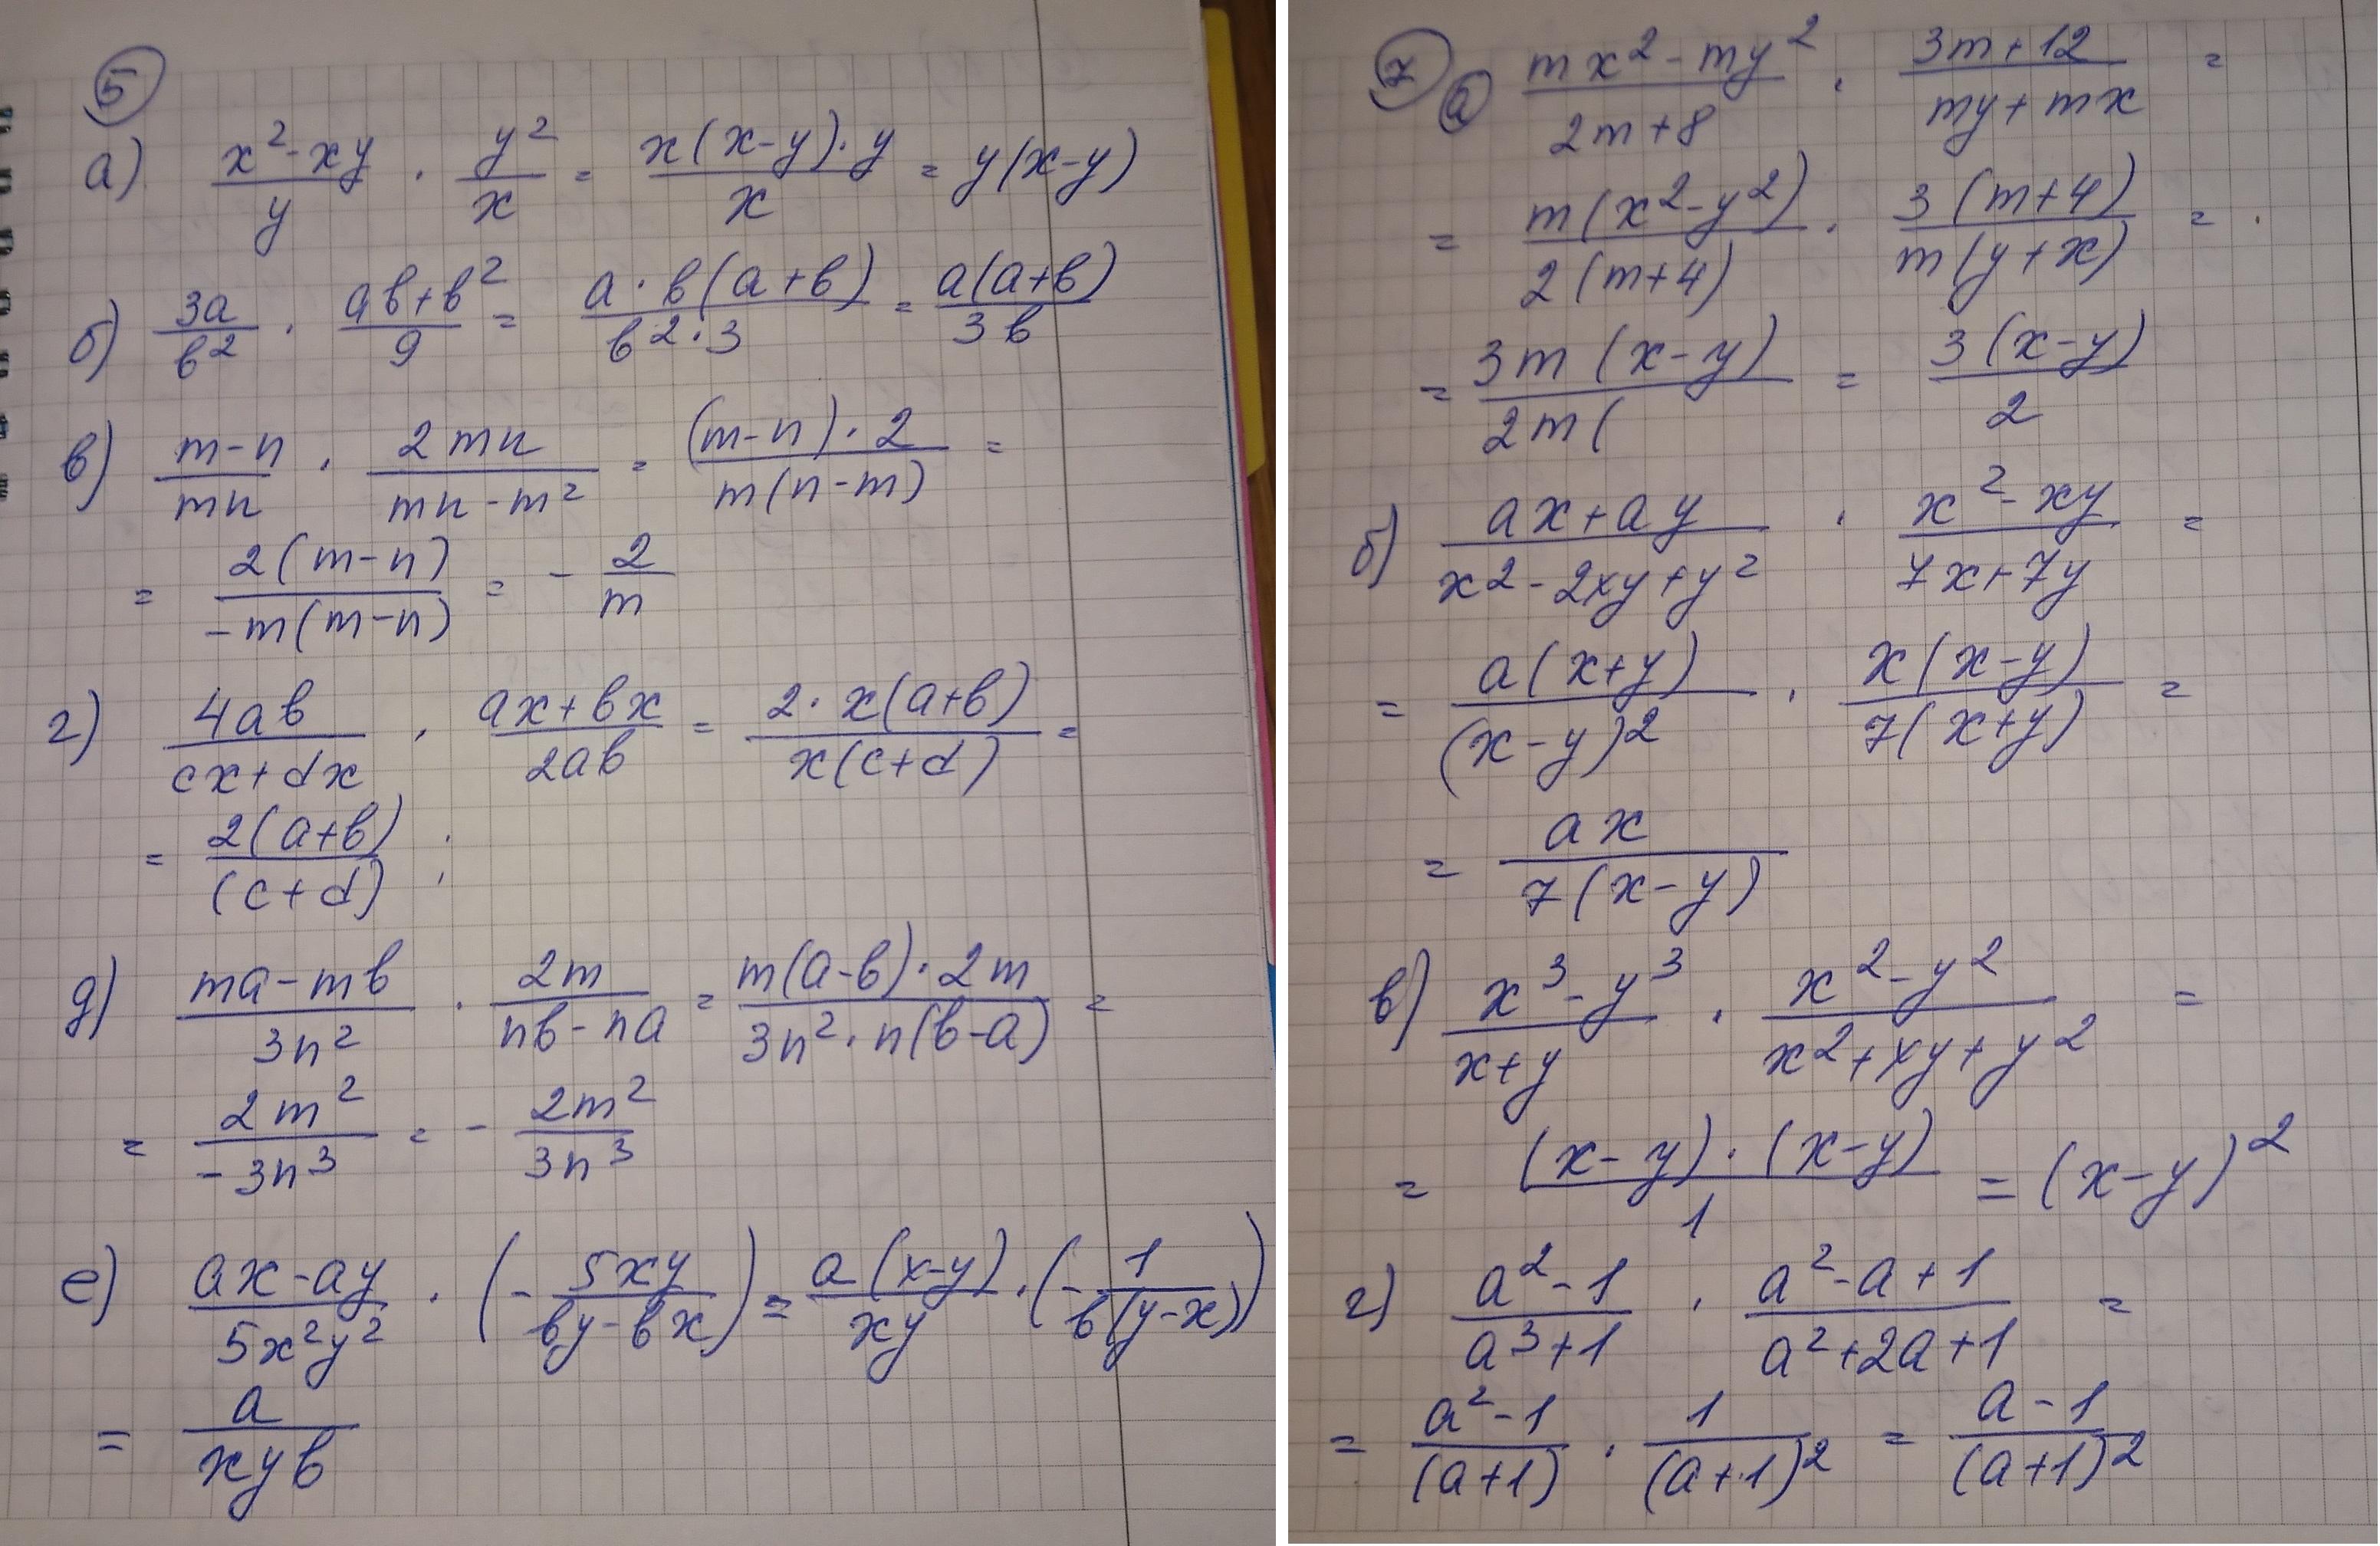 5
а) \frac{x^2-xy}{y} \cdot \frac{y^2}{x} = \frac{x(x-y) \cdot y}{x} = y(x-y)
б) \frac{3a}{b^2} \cdot \frac{ab+b^2}{9} = \frac{a \cdot b(a+b)}{b^2 \cdot 3} = \frac{a(a+b)}{3b}
в) \frac{m-n}{mn} \cdot \frac{2mn}{mn-m^2} = \frac{(m-n) \cdot 2}{m(n-m)} =
= \frac{2(m-n)}{-m(m-n)} = -\frac{2}{m}
г) \frac{4ab}{cx+dx} \cdot \frac{ax+bx}{2ab} = \frac{2 \cdot x(a+b)}{x(c+d)} =
= \frac{2(a+b)}{(c+d)} ;
д) \frac{ma-mb}{3n^2} \cdot \frac{2m}{nb-na} = \frac{m(a-b) \cdot 2m}{3n^2 \cdot n(b-a)} =
= \frac{2m^2}{-3n^3} = -\frac{2m^2}{3n^3}
е) \frac{ax-ay}{5x^2y^2} \cdot (-\frac{5xy}{by-bx}) = \frac{a(x-y)}{xy} \cdot (-\frac{1}{b(y-x)})
= \frac{a}{xyb}
7 а \frac{mx^2-my^2}{2m+8} \cdot \frac{3m+12}{my+mx} =
= \frac{m(x^2-y^2)}{2(m+4)} \cdot \frac{3(m+4)}{m(y+x)} =
= \frac{3m(x-y)}{2m(} = \frac{3(x-y)}{2}
б) \frac{ax+ay}{x^2-2xy+y^2} \cdot \frac{x^2-xy}{7x+7y} =
= \frac{a(x+y)}{(x-y)^2} \cdot \frac{x(x-y)}{7(x+y)} =
= \frac{ax}{7(x-y)}
в) \frac{x^3-y^3}{x+y} \cdot \frac{x^2-y^2}{x^2+xy+y^2} =
= \frac{(x-y) \cdot (x-y)}{1} = (x-y)^2
г) \frac{a^2-1}{a^3+1} \cdot \frac{a^2-a+1}{a^2+2a+1} =
= \frac{a^2-1}{(a+1)} \cdot \frac{1}{(a+1)^2} = \frac{a-1}{(a+1)^2}